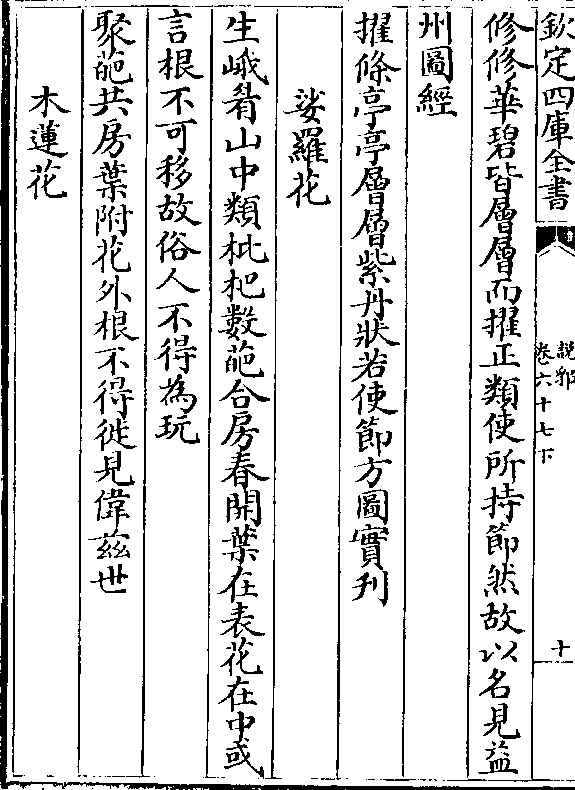 欽定四庫全書
說郛
卷六十七下
十
修修華碧皆層層而擢正類使所持節然故以名見益
州圖經
擢條亭亭層層紫丹狀若使節方圖實刋
娑羅花
生峨眉山中類枇杷數葩合房春開葉在表花在中或
言根不可移故俗人不得為玩
聚葩共房葉附花外根不得徙見偉茲世
木蓮花